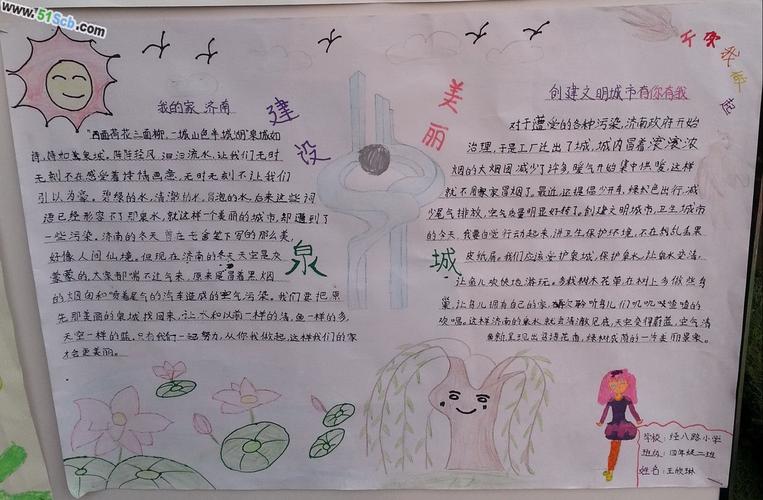 www.51Scb.com
建设
美丽
泉城
我的家 济南
"四面荷花三面柳,一城山色半城湖"泉城如
诗,诗如美泉城。阵阵轻风,汩汩流水,让我们无时
无刻不在感受着诗情画意,无时无刻不让我们
引以为豪。碧绿的水,清澈的水,冒泡的水,后来这些词
语已经形容不了那泉水,就这样一个美丽的城市,却遭到了
一些污染。济南的冬天 曾在老舍笔下写的那么美,
好像人间仙境。但现在济南的冬天天空是灰
蒙蒙的,大家都喘不过气来,原来是冒着黑烟
的烟囱和喷着尾气的汽车造成的空气污染。我们要把原
先那美丽的泉城找回来,让水和以前一样的清,鱼一样的多,
天空一样的蓝。只有我们一起努力,从你我做起,这样我们的家
才会更美丽。
创建文明城市有你有我
对于遭受的各种污染,济南政府开始
治理,于是工厂迁出了城,城内冒着滚滚浓
烟的大烟囱减少了许多,暖气开始集中供暖,这样
就不用家家冒烟了。最近,还提倡少开车,绿色出行,减
少尾气排放,空气质量明显好转了。创建文明城市,卫生城市
的今天,我要自觉行动起来,讲卫生保护环境,不在乱丢果
皮纸屑。我们应该爱护泉城,保护泉水,让泉水变清,
让鱼儿欢快地游玩。多栽树木花草,在树上多做些鸟
巢,让鸟儿拥有自己的家,聆听鸟儿们叽叽喳喳的
欢唱。这样济南的泉水就会清澈见底,天空变得蔚蓝,空气清
新,呈现出鸟语花香,绿树成荫的一片美丽景象。
学校:经八路小学
班级:四年级二班
姓名:王欣琳